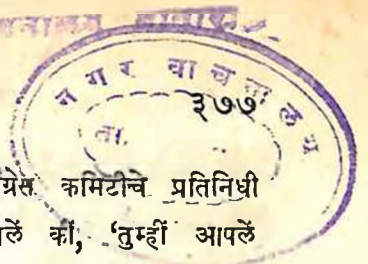 नगर वाचनालय
३७७
ता.
ग्रेस कमिटीचे प्रतिनिधी
लें कीं, 'तुम्हीं आपलें